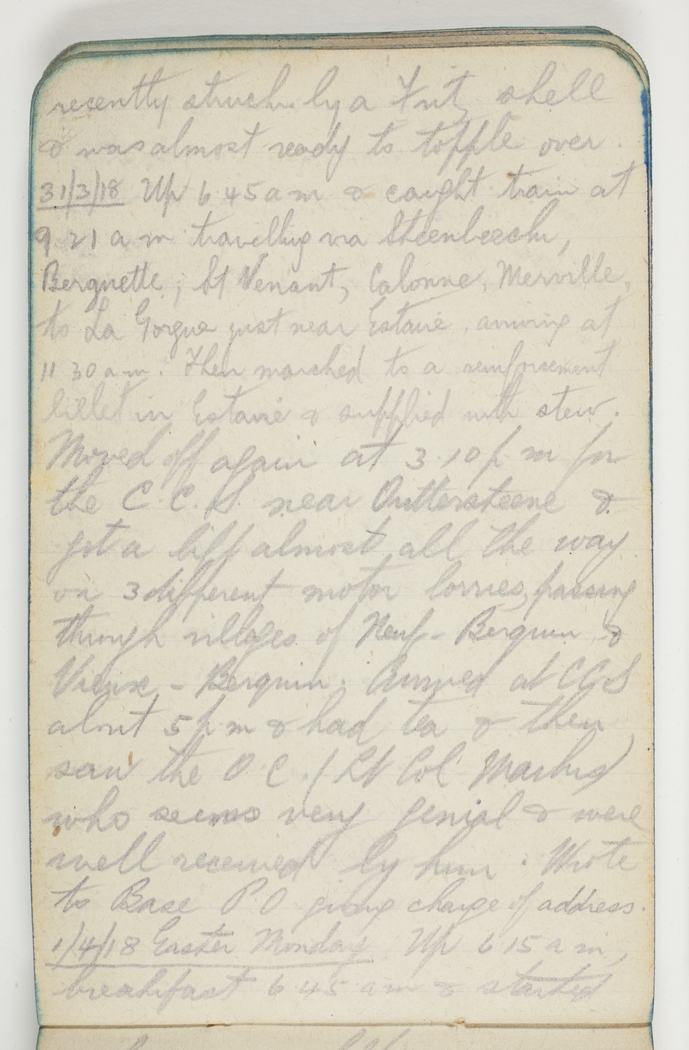 recently struck by a Fritz shell
& was almost ready to topple over.
31/3/18 Up 6 45 a m & caught train at
9. 21 a m travelling via Steenbecke,
Berguette, St Venant, Calonne, Merville,
to La Gorgue just near Estaire, arriving at
11 30 a m. Then marched to a reinforcement
billet in Estaire & supplied with stew.
Moved off again at 3.10 p m for
the C. C. S. near Outtersteene &
got a lift almost all the way
on 3 different motor lorries, passing
through villages of Neuf - Berquin &
Vieux - Berquin. Arrived at CCS
about 5 p m & had tea & then
saw the O C. (Lt Col
who seems very genial & were
well received by him. Wrote
to Base P.O giving change of address.
1/4/18 Easter Monday Up 6 15 a m,
breakfast 6.45 a m & started